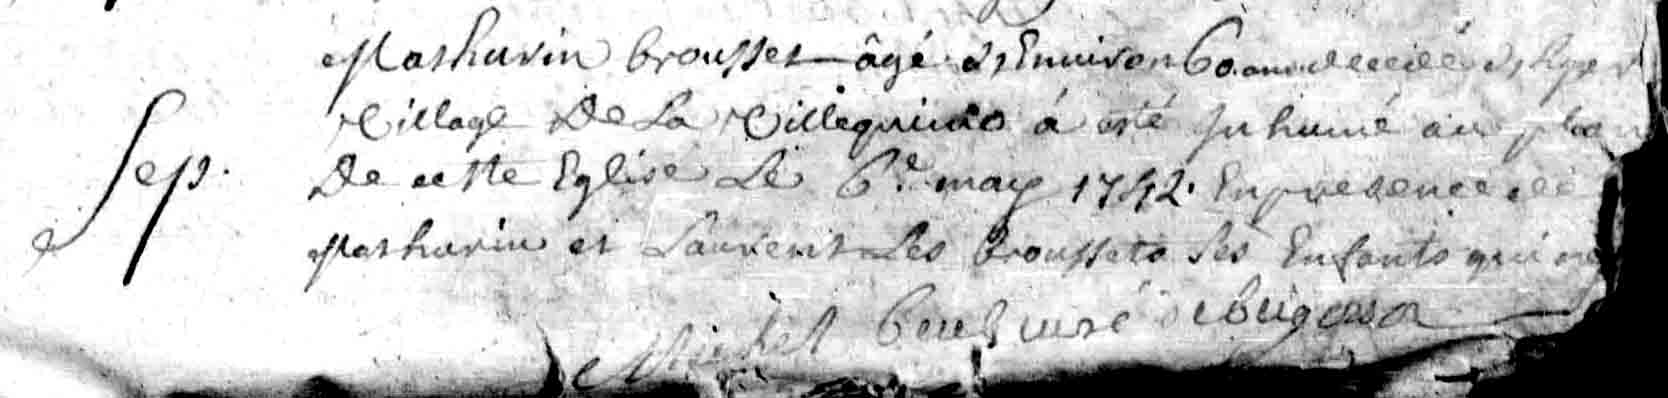 Mathurin brousset âgé d'Environ 60. ans decedé
village De La villeguino á esté Inhumé au
Sep. De cette Eglise Le 6e. may 1742. En presence de
Mathurin et Laurent Les broussets ses Enfants qui ne
Michel curé